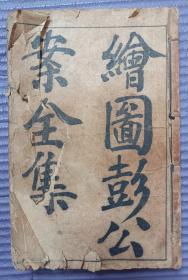 繪圖彭公
案全集